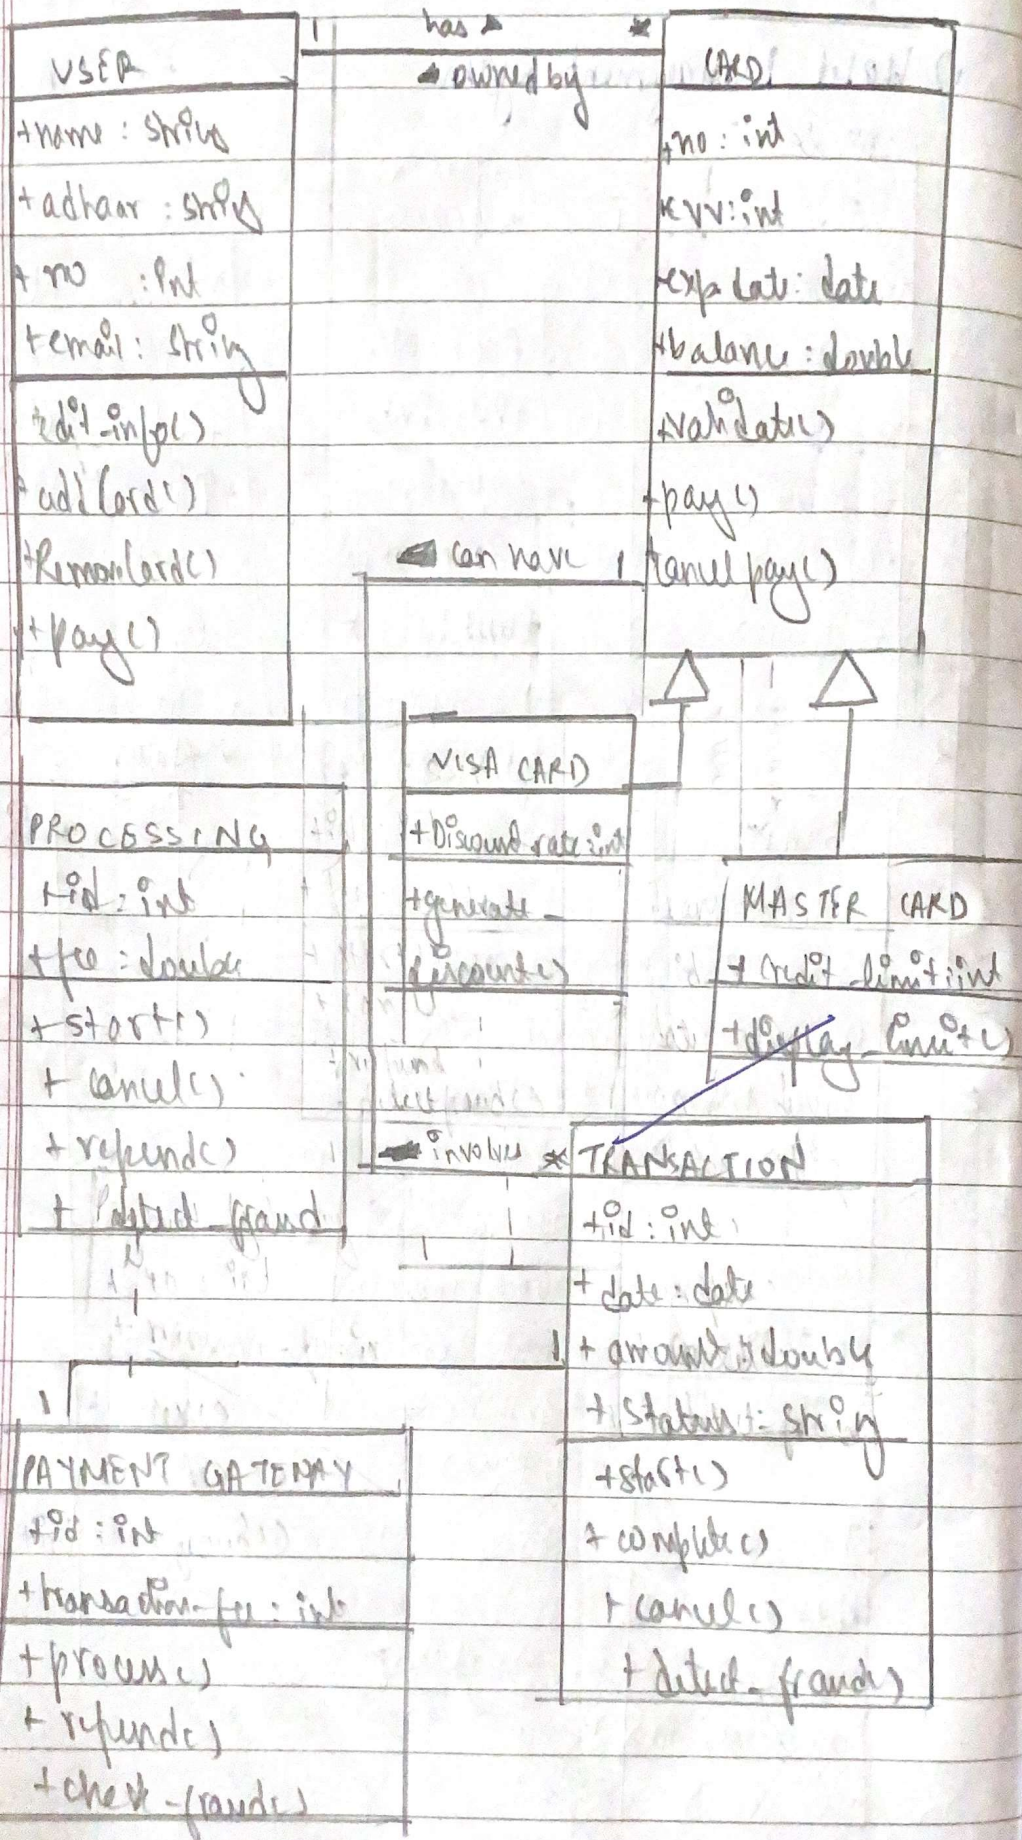 1 has *
owned by
USER
+name : string
+adhaar : string
+ no : int
+email : string
edit_info()
+ addCard()
+RemoveCard()
+ pay()
CARD
+no : int
+cvv : int
+exp date : date
+balance : double
+validate()
+pay()
cancel pay()
can have 1
VISA CARD
+Discount rate : int
+generate_
discount()
MASTER CARD
+ credit_limit : int
+display_limit()
PROCESSING
+id : int
+fee : double
+ start()
+ cancel()
+ refund()
+ detect_fraud
involves *
TRANSACTION
+id : int
+ date : date
+ amount : double
+ status : string
+start()
+ complete()
+ cancel()
+ detect_fraud()
1
1
1
PAYMENT GATEWAY
+id : int
+transaction_fee : int
+process()
+ refund()
+ check_fraud()